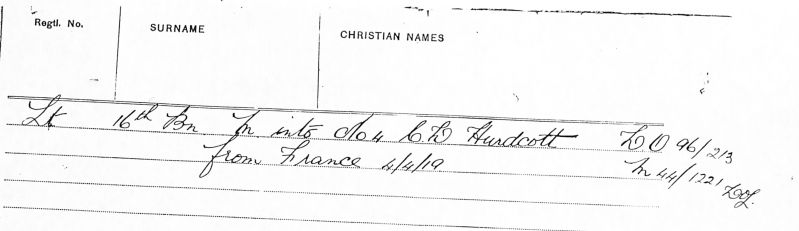 Regtl. No. SURNAME CHRISTIAN NAMES
Lt 16th Bn. M into No 4 C.D Hurdcott D O 96/213
from France 4/4/19 M 44/1221